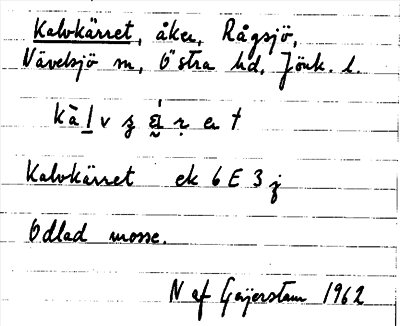 Kalvkärret, åker, Rågsjö,
Vävelsjö sn, Östra hd, Jönk. l.
Kalvkärret ek 6 E 3 j
Odlad mosse.
N af Geijerstam 1962